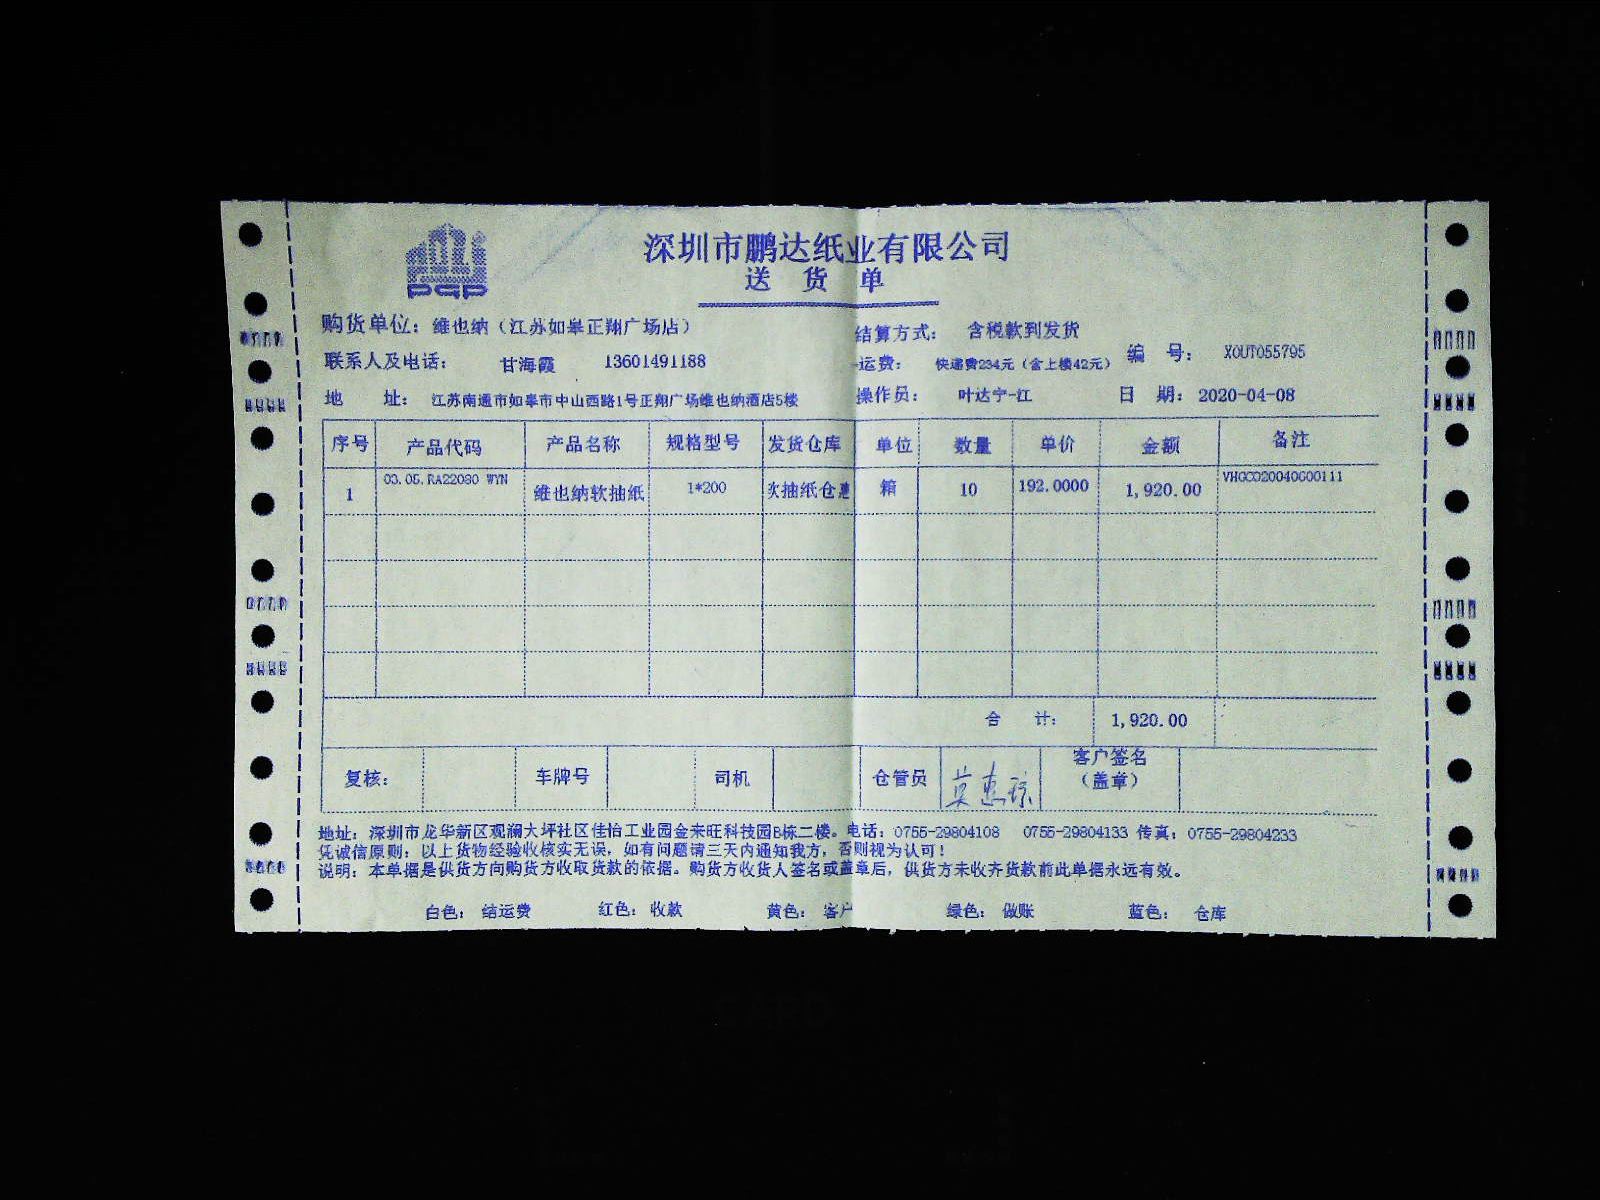 PGP
深圳市鹏达纸业有限公司
送 货 单
购货单位：维也纳（江苏如皋正翔广场店） 结算方式： 含税款到发货
联系人及电话： 甘海霞 13601491188 运费： 快递费234元（含上楼42元） 编 号： XOUT055795
地 址： 江苏南通市如皋市中山西路1号正翔广场维也纳酒店5楼 操作员： 叶达宁-江 日 期： 2020-04-08
序号 产品代码 产品名称 规格型号 发货仓库 单位 数量 单价 金额 备注
1 03.05.RA22090 WYN 维也纳软抽纸 1*200 抽纸仓 箱 10 192.0000 1,920.00
合 计： 1,920.00
复核： 车牌号 司机 仓管员 客户签名（盖章）
地址：深圳市龙华新区观澜大坪社区佳怡工业园金来旺科技园B栋二楼。电话：0755-29804108 0755-29804133 传真：0755-29804233
凭诚信原则：以上货物经验收核实无误，如有问题请三天内通知我方，否则视为认可！
说明：本单据是供货方向购货方收取货款的依据。购货方收货人签名或盖章后，供货方未收齐货款前此单据永远有效。
白色： 结运费 红色： 收款 黄色： 客户 绿色： 做账 蓝色： 仓库